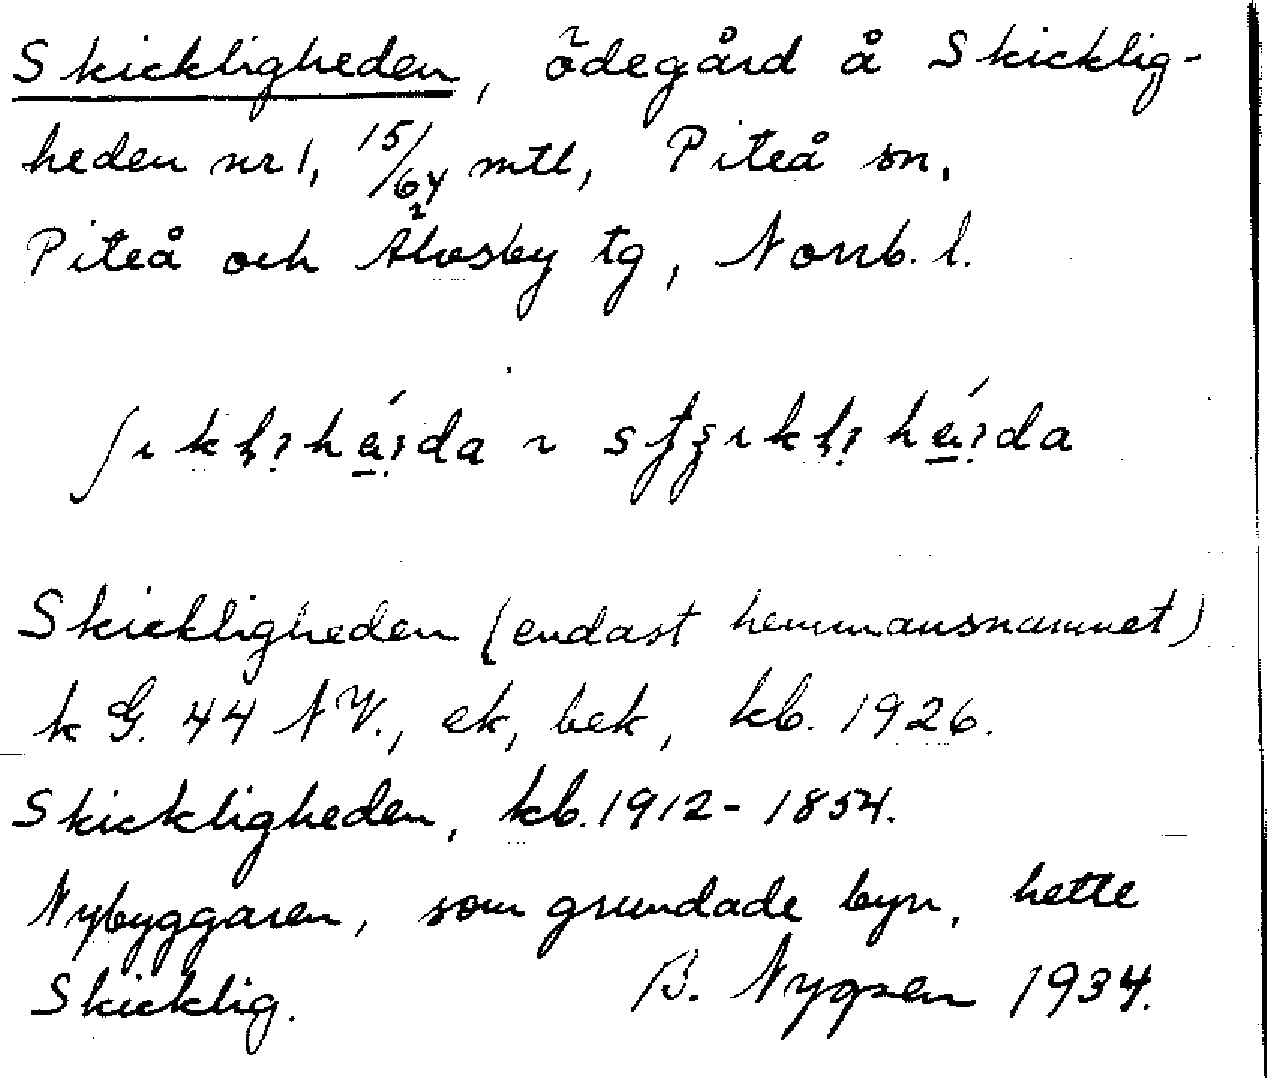 Skickligheden, ödegård å Skicklig-
heden nr 1, 15/64 mtl, Piteå sn,
Piteå och Älvsby tg, Norrb. l.
Skickligheden (endast hemmansnamnet)
k G. 44 NV., ek, bek, kb. 1926.
Skickligheden, kb. 1912-1854.
Nybyggaren, som grundade byn, hette
Skicklig. B. 1934.